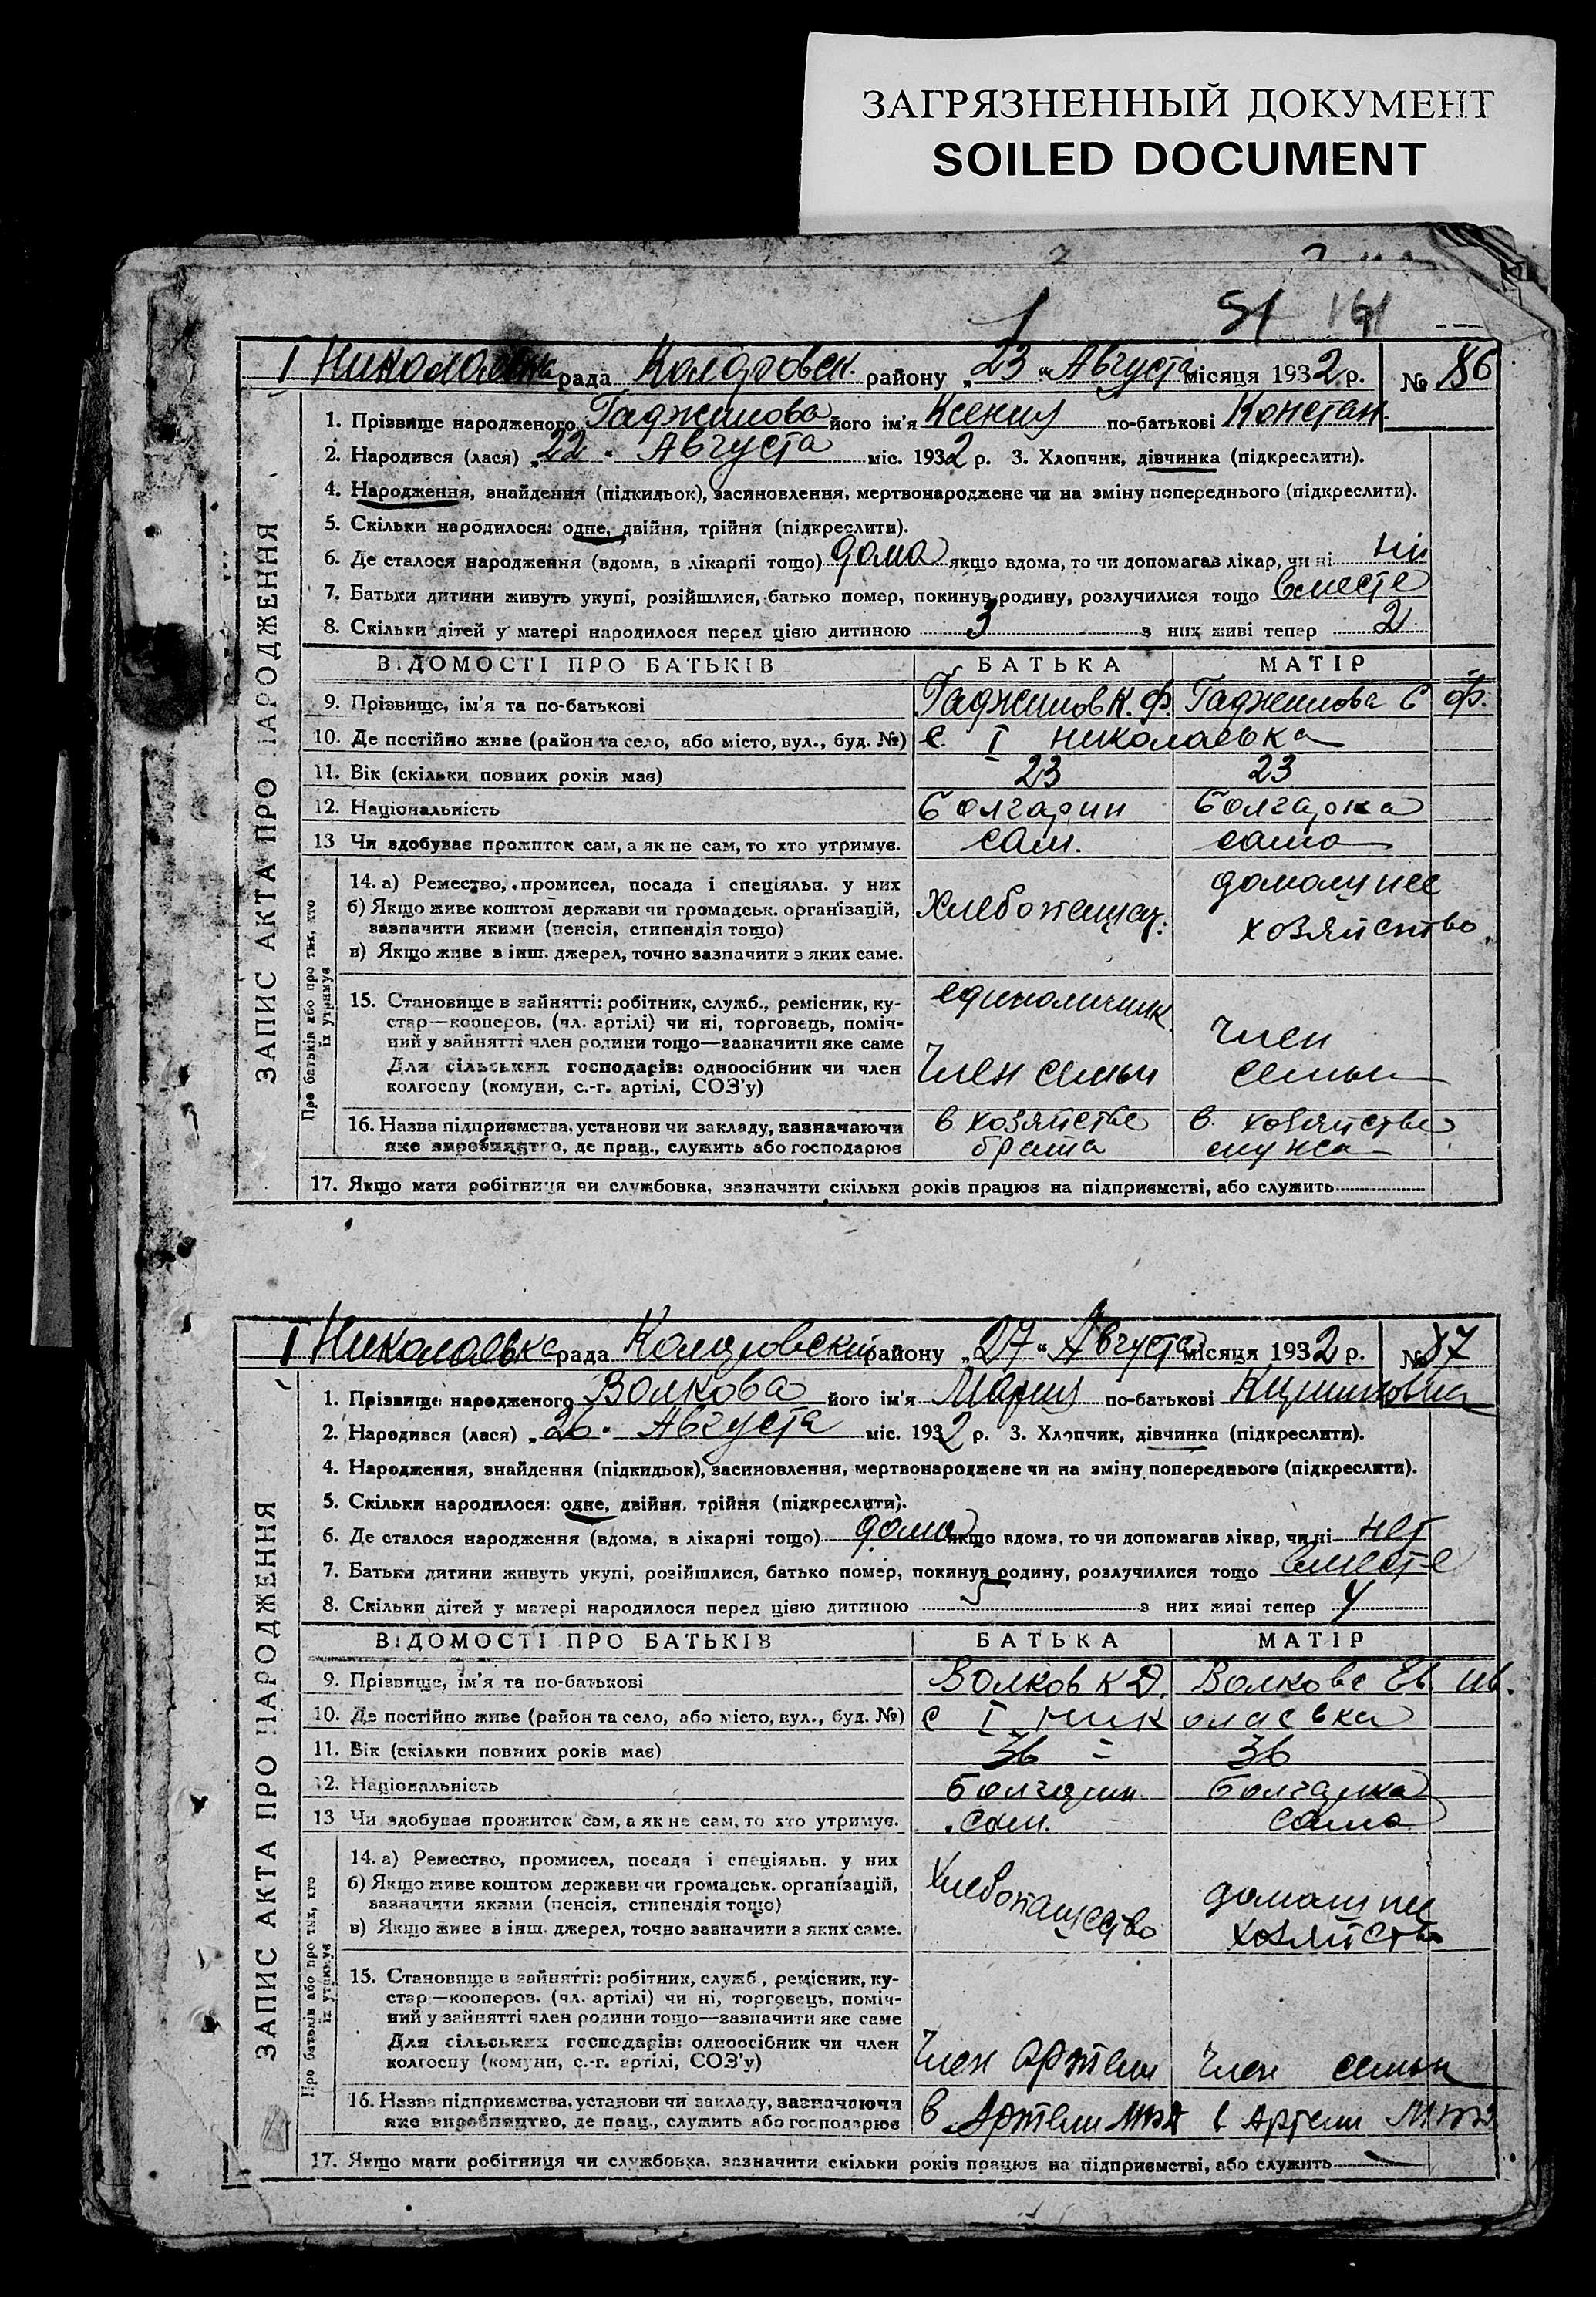 ЗАГРЯЗНЕННЫЙ ДОКУМЕНТ
SOILED DOCUMENT
51 191
I Николаевка рада Коларовск. району „23“ Августа місяця 1932 р. № 86
ЗАПИС АКТА ПРО НАРОДЖЕННЯ
1. Прізвище народженого Гаджилова його ім'я Ксения по-батькові Констан.
2. Народився (лася) „22 Августа міс. 1932 р. 3. Хлопчик, дівчинка (підкреслити).
4. Народження, знайдення (підкидьок), засиновлення, мертвонароджене чи на зміну попереднього (підкреслити).
5. Скільки народилося: одне, двійня, трійня (підкреслити).
6. Де сталося народження (вдома, в лікарні тощо) дома якщо вдома, то чи допомагав лікар, чи ні
7. Батьки дитини живуть укупі, розійшлися, батько помер, покинув родину, розлучилися тощо вместе
8. Скільки дітей у матері народилося перед цією дитиною 3 з них живі тепер 2
ВІДОМОСТІ ПРО БАТЬКІВ БАТЬКА МАТІР
9. Прізвище, ім'я та по-батькові Гаджилов К. Ф. Гаджилова С Ф.
10. Де постійно живе (район та село, або місто, вул., буд. №) с. I николаевка
11. Вік (скільки повних років має) 23 23
12. Національність болгарин болгарка
13 Чи здобуває прожиток сам, а як не сам, то хто утримує. сам. сама
Про батьків або про тих, хто їх утримує
14. а) Ремество, промисел, посада і спеціяльн. у них
б) Якщо живе коштом держави чи громадськ. організацій, зазначити якими (пенсія, стипендія тощо)
в) Якщо живе з інш. джерел, точно зазначити з яких саме.
Хлебопашец. домашнее хозяйство
15. Становище в зайнятті: робітник, служб., ремісник, ку-
стар—кооперов. (чл. артілі) чи ні, торговець, поміч-
ний у зайнятті член родини тощо—зазначити яке саме
Для сільських господарів: одноосібник чи член
колгоспу (комуни, с.-г. артілі, СОЗ'у)
единоличник. Член семьи Член семьи
16. Назва підприємства, установи чи закладу, зазначаючи
яке виробництво, де прац., служить або господарює
в хозяйстве брата в хозяйстве мужа
17. Якщо мати робітниця чи службовка, зазначити скільки років працює на підприємстві, або служить
I Николаевка рада Коларовский району „27“ Августа місяця 1932 р. № 87
ЗАПИС АКТА ПРО НАРОДЖЕННЯ
1. Прізвище народженого Волкова його ім'я Мария по-батькові
2. Народився (лася) „26 Августа міс. 1932 р. 3. Хлопчик, дівчинка (підкреслити).
4. Народження, знайдення (підкидьок), засиновлення, мертвонароджене чи на зміну попереднього (підкреслити).
5. Скільки народилося: одне, двійня, трійня (підкреслити).
6. Де сталося народження (вдома, в лікарні тощо) дома якщо вдома, то чи допомагав лікар, чи ні нет
7. Батьки дитини живуть укупі, розійшлися, батько помер, покинув родину, розлучилися тощо вместе
8. Скільки дітей у матері народилося перед цією дитиною 5 з них живі тепер 4
ВІДОМОСТІ ПРО БАТЬКІВ БАТЬКА МАТІР
9. Прізвище, ім'я та по-батькові Волков К Д. Волкова Ев. Ив.
10. Де постійно живе (район та село, або місто, вул., буд. №) с I николаевка
11. Вік (скільки повних років має) 36 36
12. Національність болгарин болгарка
13 Чи здобуває прожиток сам, а як не сам, то хто утримує. сам. сама
Про батьків або про тих, хто їх утримує
14. а) Ремество, промисел, посада і спеціяльн. у них
б) Якщо живе коштом держави чи громадськ. організацій, зазначити якими (пенсія, стипендія тощо)
в) Якщо живе з інш. джерел, точно зазначити з яких саме.
Хлебопашество домашнее хозяйство
15. Становище в зайнятті: робітник, служб., ремісник, ку-
стар—кооперов. (чл. артілі) чи ні, торговець, поміч-
ний у зайнятті член родини тощо—зазначити яке саме
Для сільських господарів: одноосібник чи член
колгоспу (комуни, с.-г. артілі, СОЗ'у)
Член Артели Член семьи
16. Назва підприємства, установи чи закладу, зазначаючи
яке виробництво, де прац., служить або господарює
в Артели в Артели
17. Якщо мати робітниця чи службовка, зазначити скільки років працює на підприємстві, або служить